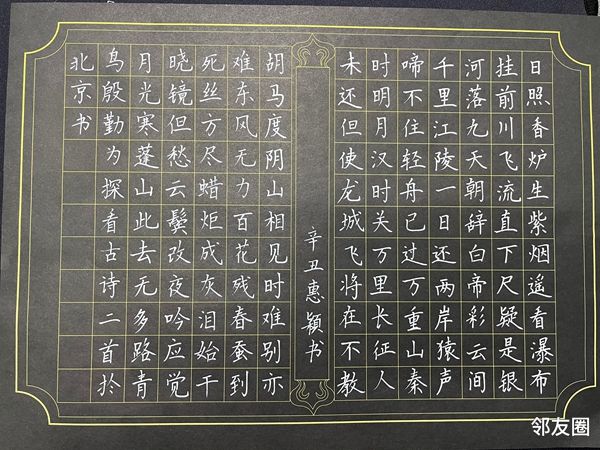 日照香炉生紫烟遥看瀑布
挂前川飞流直下尺疑是银
河落九天朝辞白帝彩云间
千里江陵一日还两岸猿声
啼不住轻舟已过万重山秦
时明月汉时关万里长征人
未还但使龙城飞将在不教
辛丑惠颖书
胡马度阴山相见时难别亦
难东风无力百花残春蚕到
死丝方尽蜡炬成灰泪始干
晓镜但愁云鬓改夜吟应觉
月光寒蓬山此去无多路青
鸟殷勤为探看古诗二首於
北京书
邻友圈